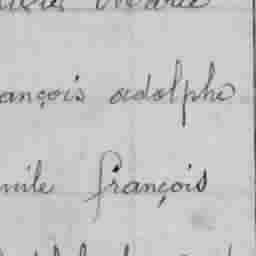 Marie
ançois adolphe
mile françois